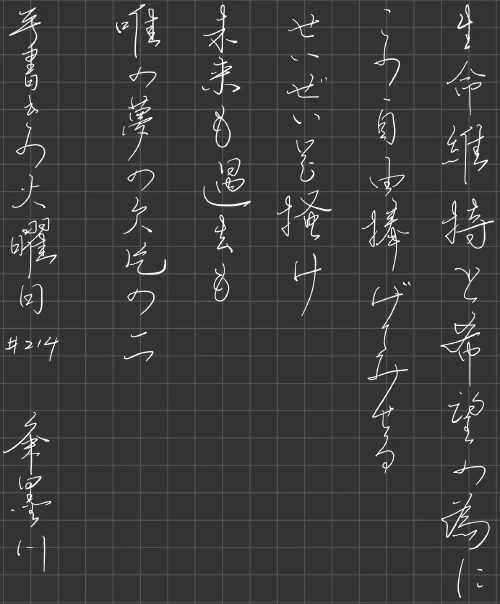 生命維持と希望の為に
この自由捧げてみせる
せいぜい足掻け
未来も過去も
唯の夢の欠片の二
手書きの火曜日 #214 墨川